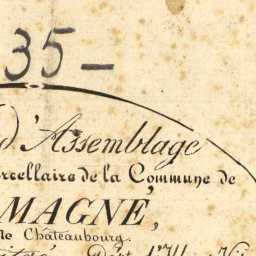 35 —
d'Assemblage
rcellaire de la Commune de
MAGNÉ,
de Châteaubourg.